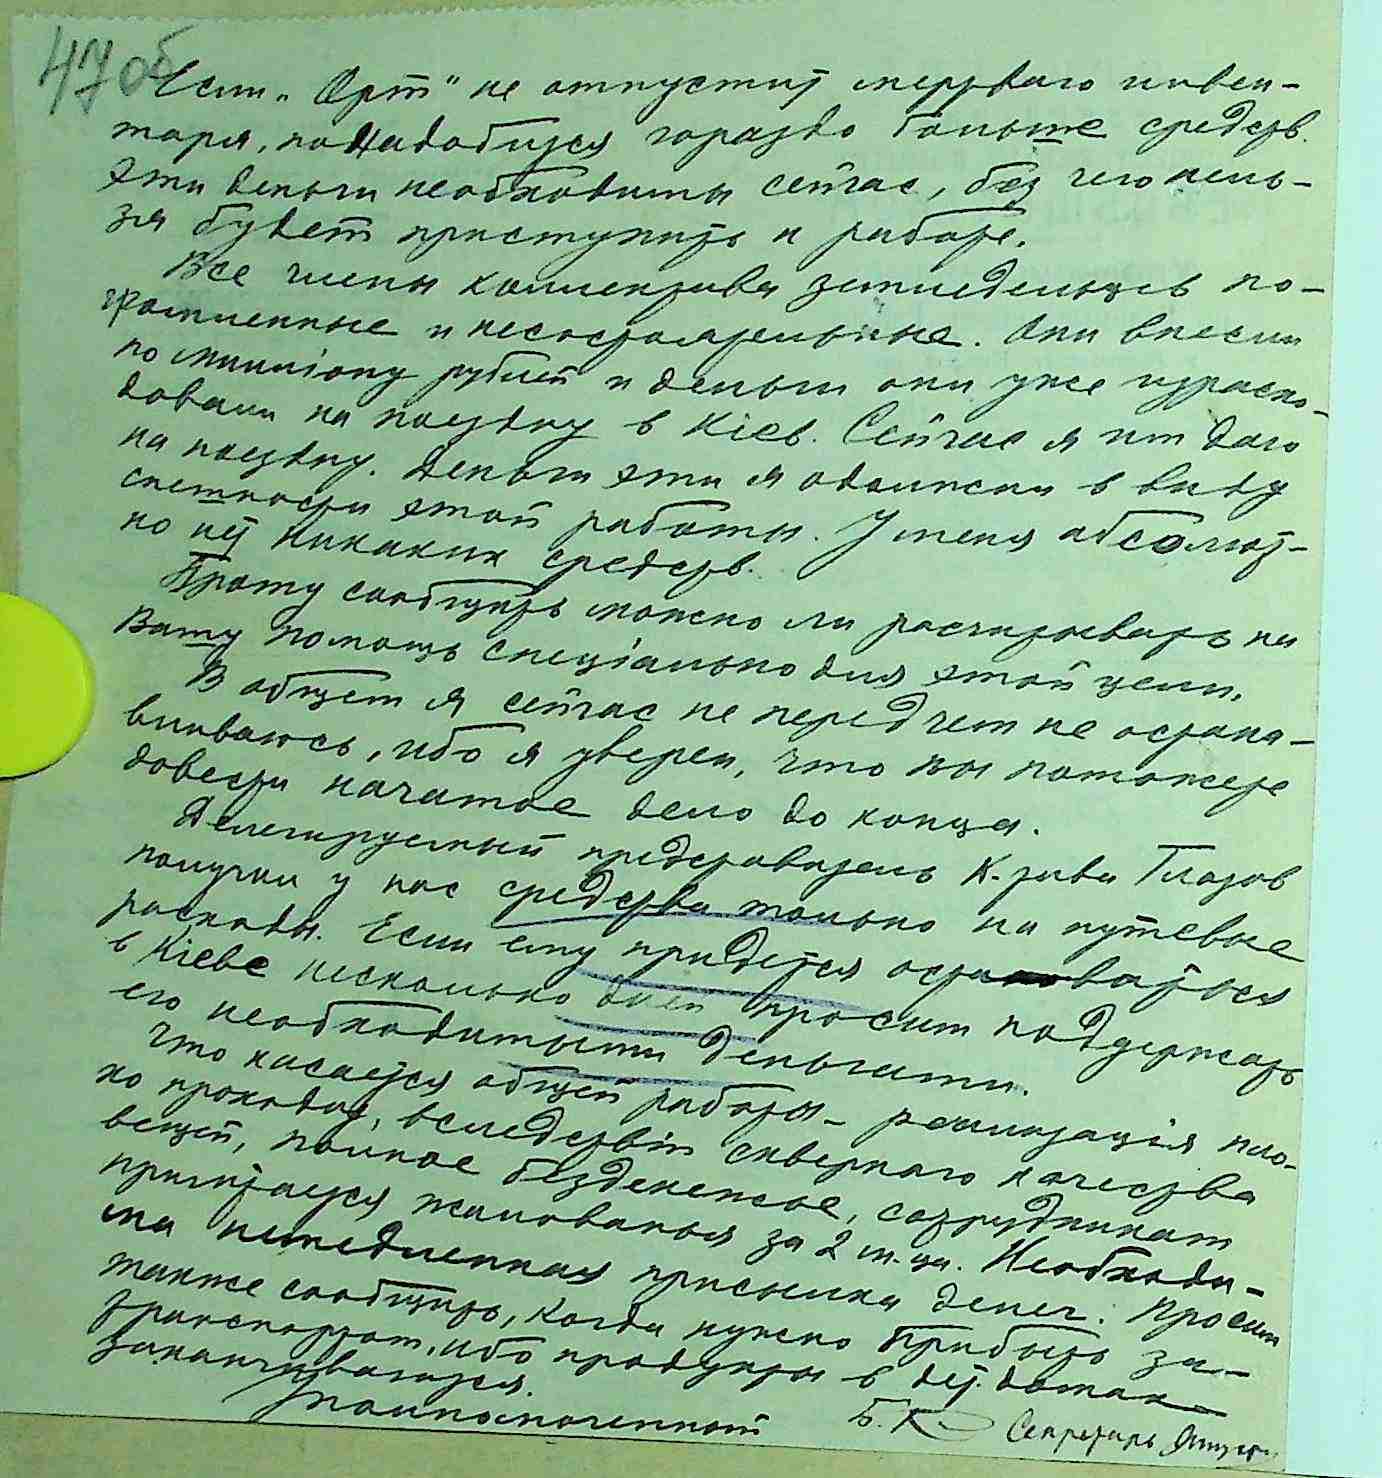 47 об
Если „Орт" не отпустит мертваго инвен-
таря, понадобится гораздо больше средств.
Эти деньги необходимы сейчас, без чего нель-
зя будет приступить к работе.
Все члены коллектива земледельцев по-
громленные и несостоятельные. Они внесли
по миллiону рублей и деньги они уже израсхо-
довали на поездку в Кiев. Сейчас я им дал
на поездку. Деньги эти я одолжил в виду
спешности этой работы. У меня абсолют-
но нет никаких средств.
Прошу сообщить можно ли расчитывать на
Вашу помощь специально для этой цели.
В общем я сейчас не перед чем не остана-
вливаюсь, ибо я уверен, что вы поможете
довести начатое дело до конца.
Делегируемый представитель К-тива Глазов
получил у нас средства только на путевые
расходы. Если ему придется оставаться
в Кiеве несколько дней просим поддержать
его необходимыми деньгами.
Что касается общей работы – реализацiя пло-
хо проходит, вследствiи сквернаго качества
вещей, полное безденежье, сотрудникам
причитается жалованья за 2 м-ца. Необходи-
ма немедленная присылка денег. Просим
также сообщить, когда нужно прибыть за
транспортом, ибо продукты в дет. домах
заканчиваются.
Уполномоченный Б. К Секретарь